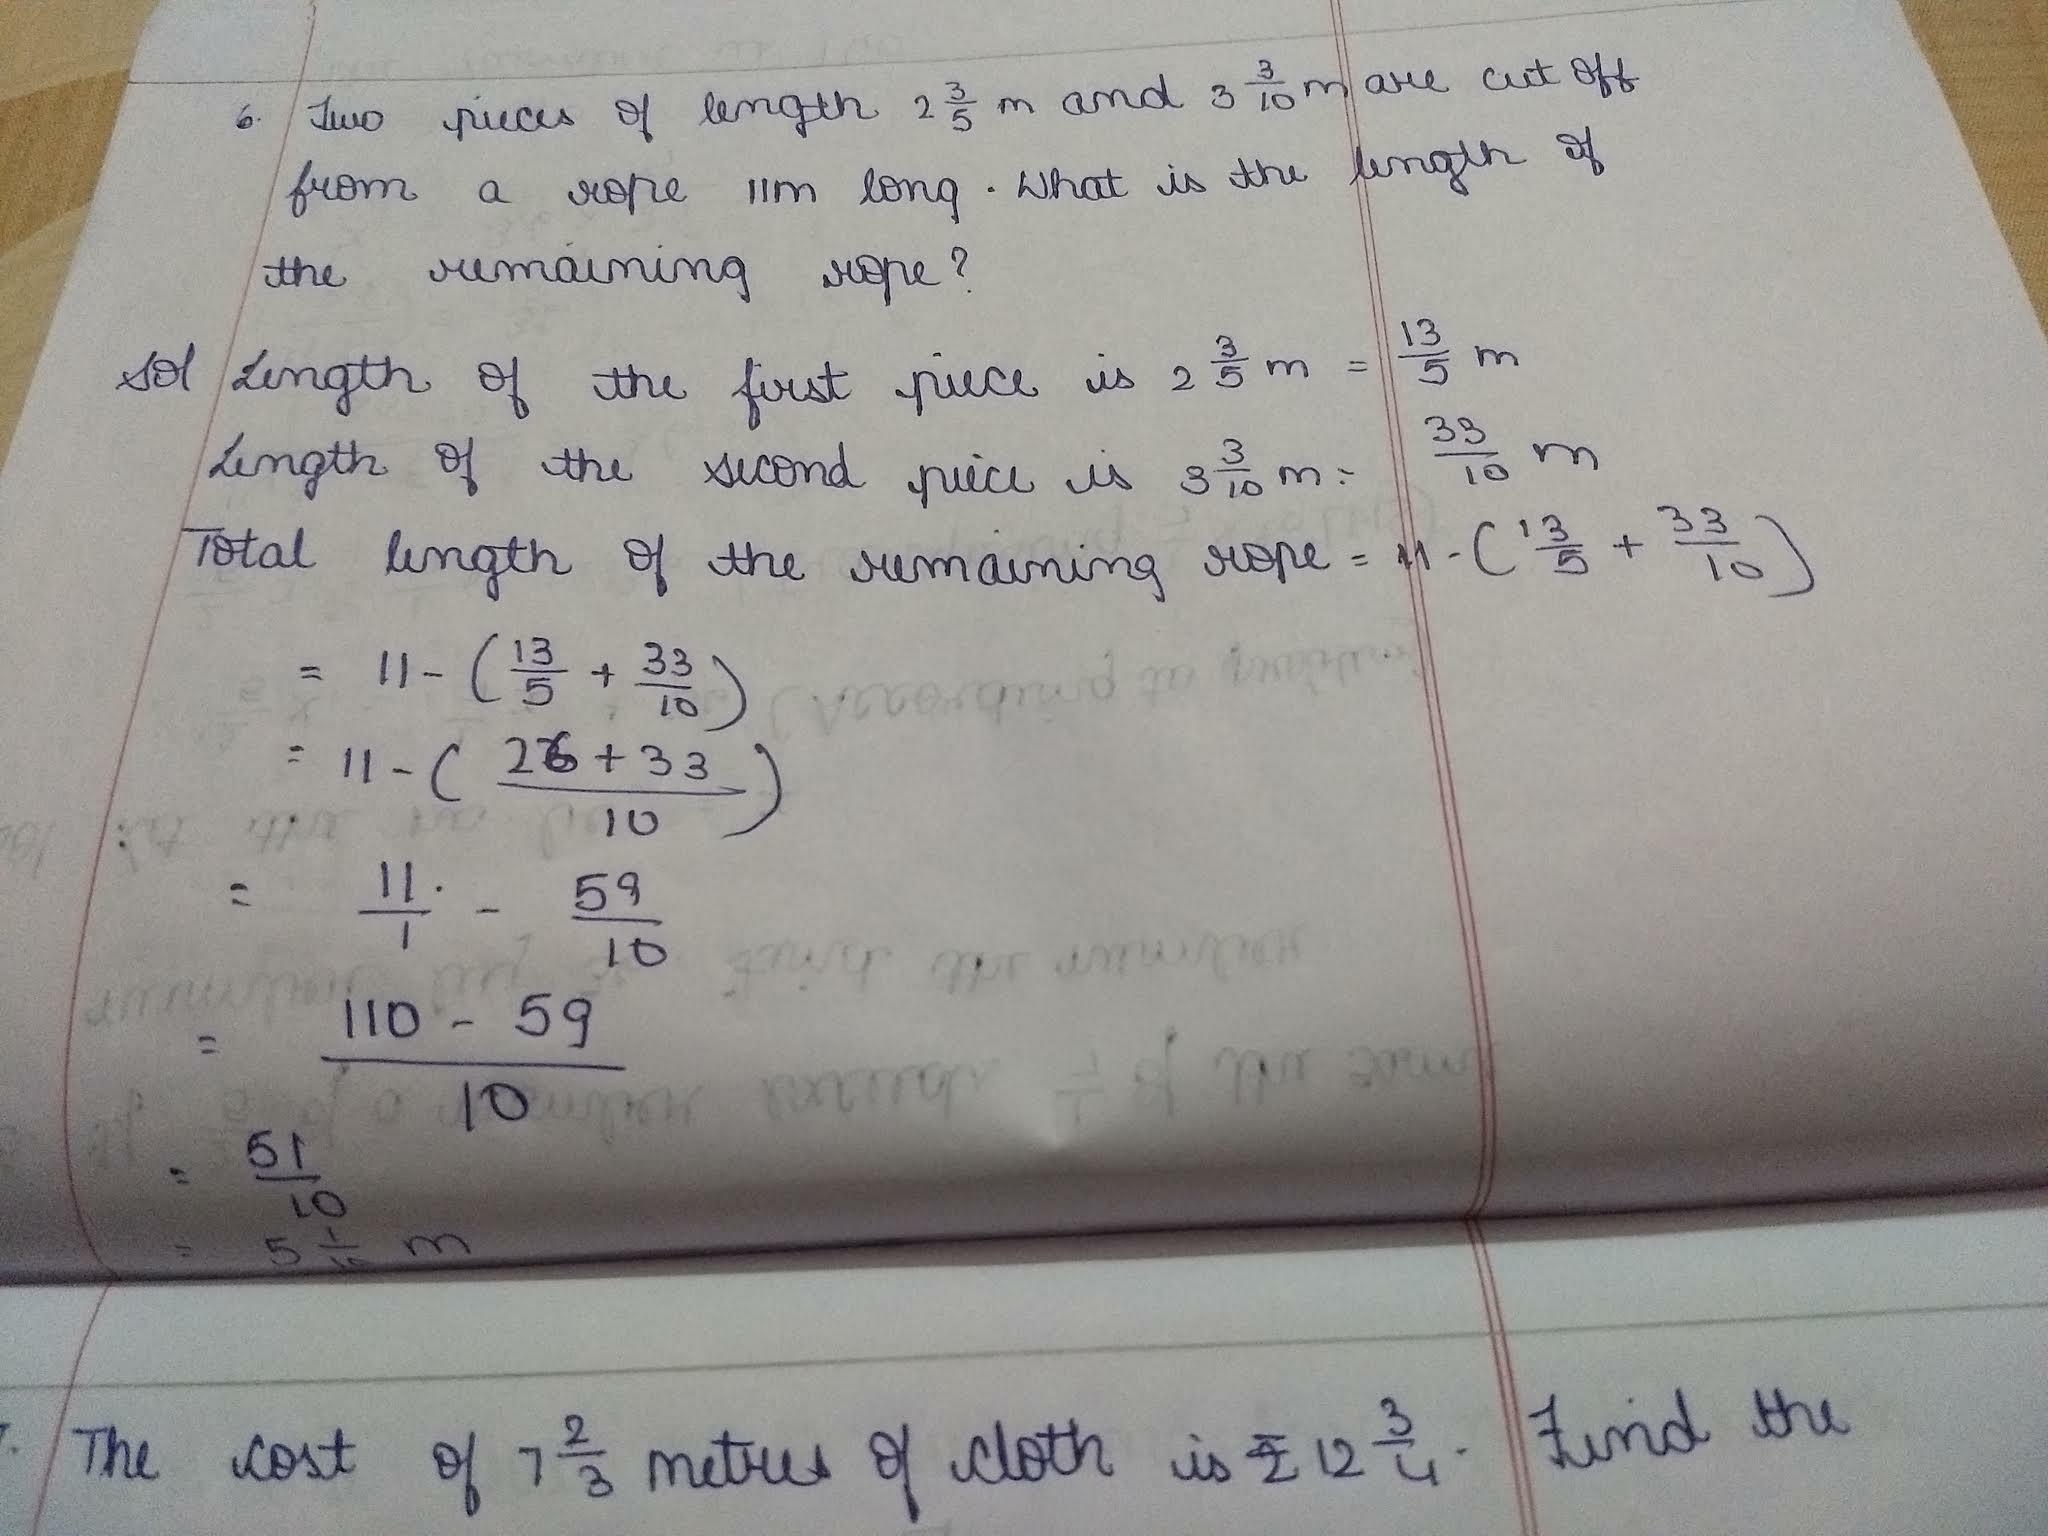 6. Two pieces of length 2 3/5 m and 3 3/10 m are cut off
from a rope 11m long. What is the length of
the remaining rope?
Sol Length of the first piece is 2 3/5 m = 13/5 m
Length of the second piece is 3 3/10 m = 33/10 m
Total length of the remaining rope = 11 - (13/5 + 33/10)
= 11 - (13/5 + 33/10)
= 11 - (26 + 33/10)
= 11/1 - 59/10
= 110 - 59/10
= 51/10
= 5 1/10 m
The cost of 7 2/3 metres of cloth is ₹ 12 3/4. Find the